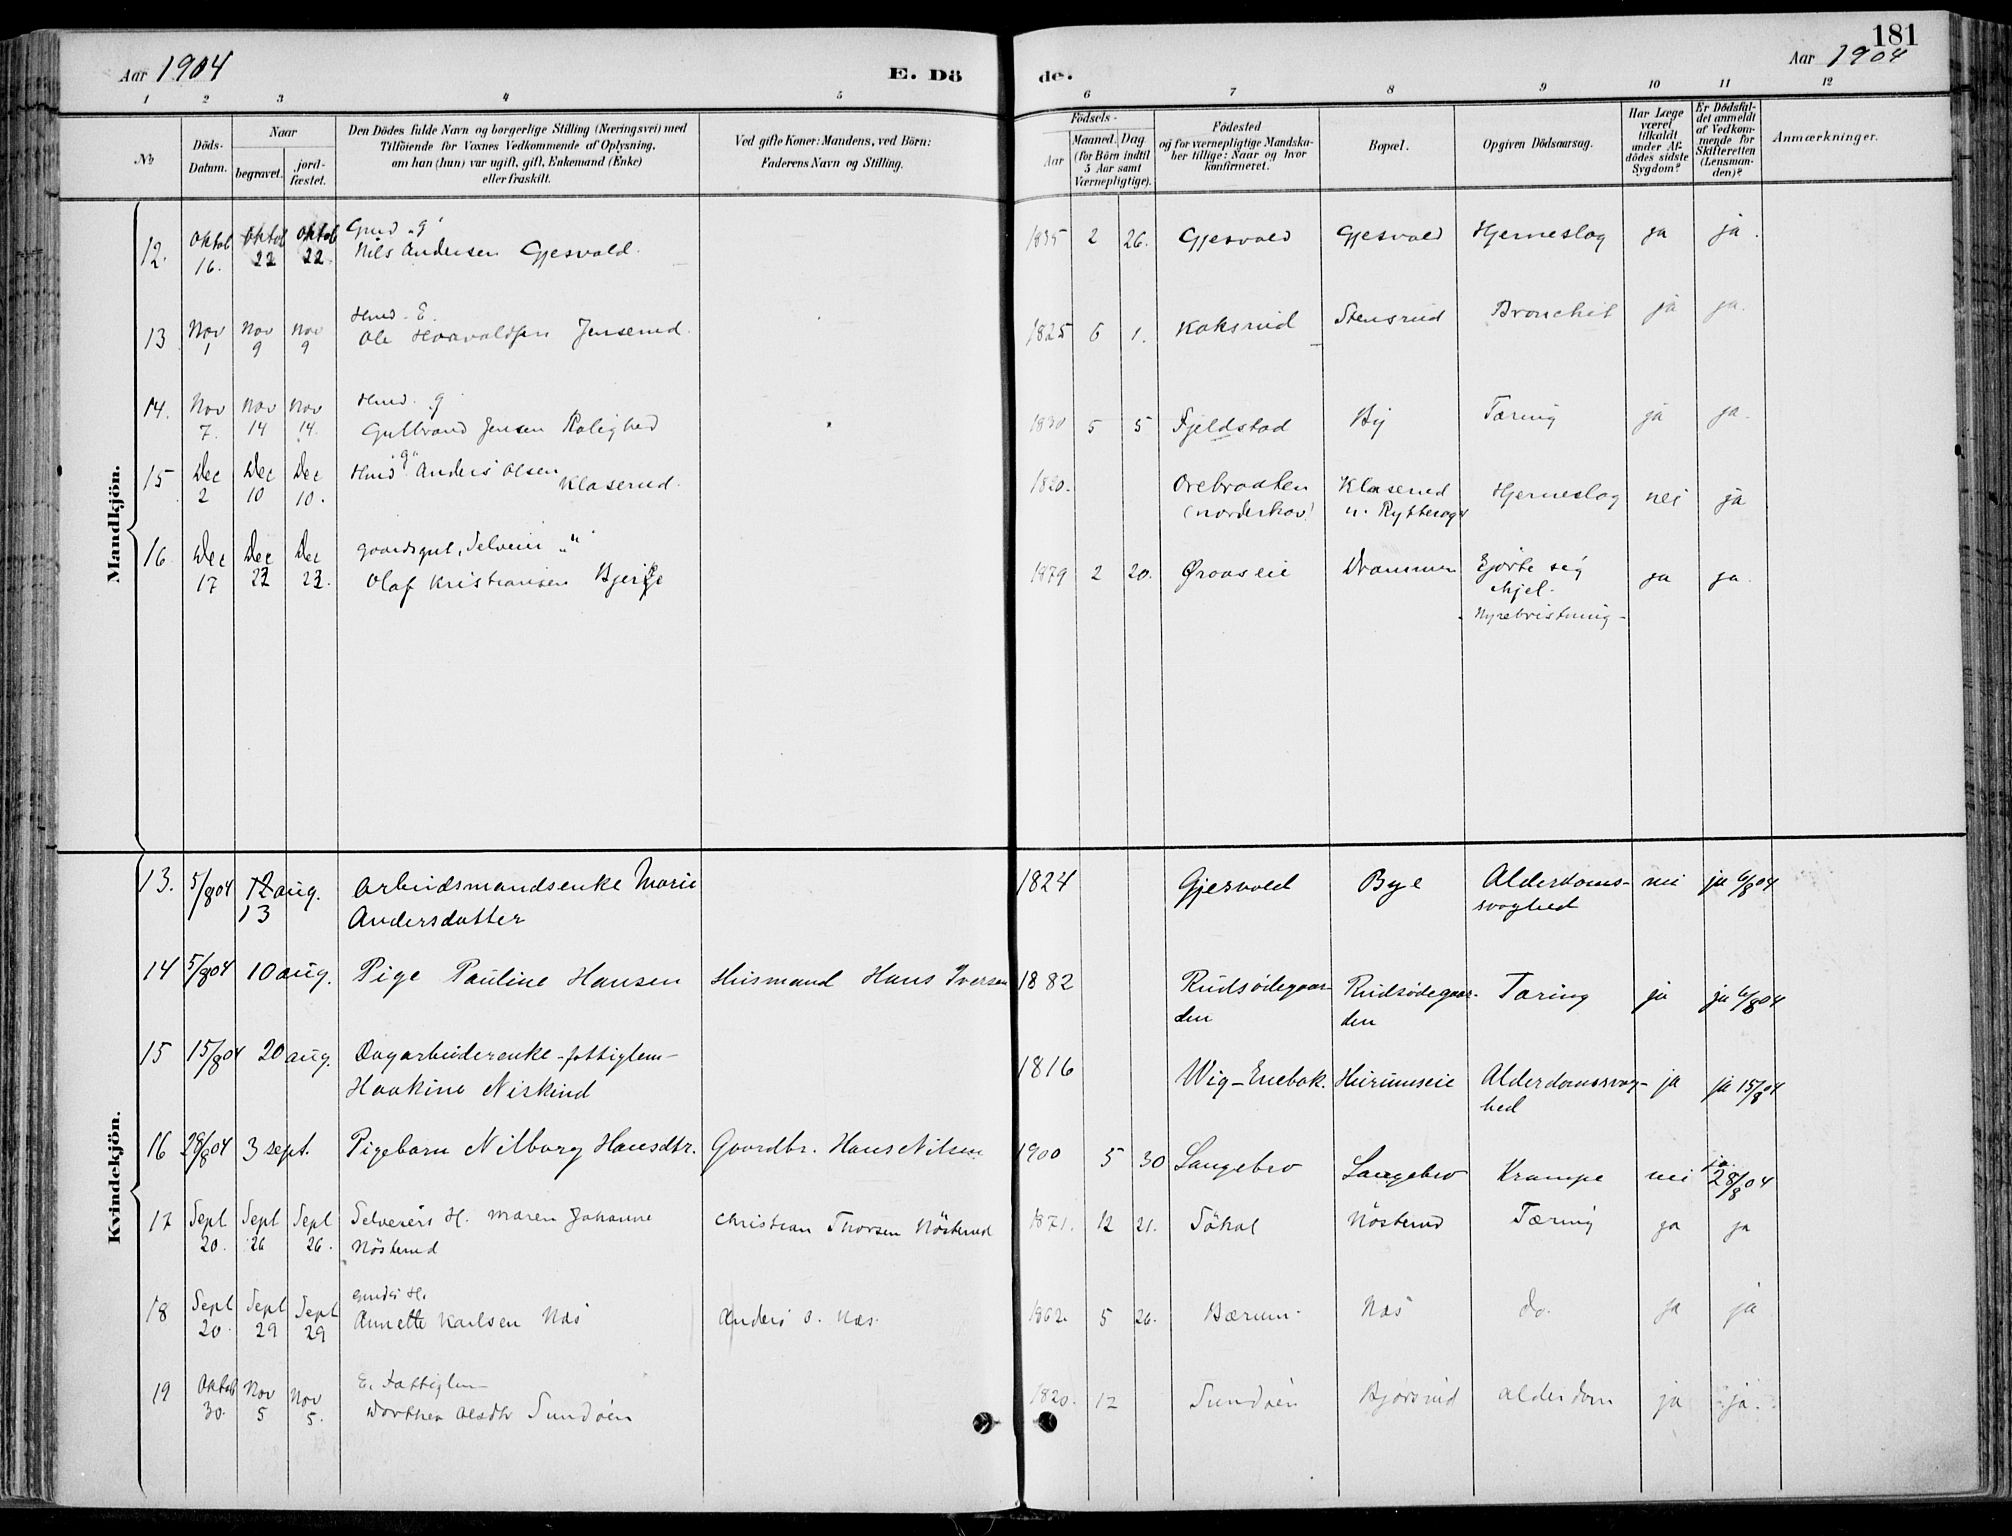 181
Aar 1904
E. Döde.
Aar 1904
1 2 3 4 5 6 7 8 9 10 11 12
No
Döds-Datum.
Naar
begravet.
jord-fæstet.
Den Dödes fulde Navn og borgerlige Stilling (Næringsvei) med
Tilföiende for Voxnes Vedkommende af Oplysning,
om han (hun) var ugift, gift, Enkemand (Enke)
eller fraskilt.
Ved gifte Koner: Mandens, ved Börn:
Faderens Navn og Stilling.
Födsels-
Aar
Maaned.
Dag
(for Börn indtil
5 Aar samt
Værnepligtige).
Födested
og for værnepligtige Mandska-
ber tillige: Naar og hvor
konfirmeret.
Bopæl.
Opgiven Dödsaarsag.
Har Læge
været
tilkaldt
under Af-
dödes sidste
Sygdom?
Er Dödsfal-
det anmeldt
af Vedkom-
mende for
Skifteretten
(Lensman-
den)?
Anmærkninger.
Mandkjön.
12. Oktob 16. Oktob 22 Oktob 22. Gmd "g" Nils Andersen Gjesvold. 1835 2 26. Gjesvold Gjesvold Hjerneslag ja ja.
13 Nov 1 Nov 9 Nov 9 Hmd. E. Ole Haavaldsen Jenserud. 1825 6 1. Koksrud Stensrud Bronchit ja ja.
14. Nov 7. Nov 14 Nov 14. Hmd. g Gulbrand Jensen Rolighed 1830 5 5 Fjeldstad By Tæring ja ja.
15 Dec 2 Dec 10 Dec 10. Hmd "g" Anders Olsen Klaserud. 1820. Orebraaten (Norderhov) Klaserud Hjerneslag nei ja
16. Dec 17 Dec 22 Dec 22. Gaardsgut, Selveier "u" Olaf Kristiansen Bjerke 1879 2 20. Øraaseie Drammen Gjorde sig ihjel. Nyrebristning- ja ja.
Kvindekjön.
13. 5/8 04 12 aug. 13 Arbeidsmandsenke Marie Andersdatter 1824 Gjesvold Bye Alderdoms-svaghed nei ja 6/8 04
14 5/8 04 10 aug. Pige Pauline Hansen Husmand Hans Iversen 1882 Rudsødegaar-den Rudsødegaar-den Tæring ja ja 6/8 04
15 15/8 04 20 aug. Dagarbeiderenke - fattiglem - Haakine Niskind 1816 Wig - Enebak. Hurumseie Alderdomssvag-hed ja ja 15/8 04
16 28/8 04 3 sept. Pigebarn Nilborg Hansdtr. Gaardbr. Hans Nilsen 1900 5 30 Langebro Langebro Krampe nei ja 28/8 04
17 Sept 20. Sept 26 Sept 26. Selveiers H. Maren Johanne Nösterud Christian Thorsen Nösterud 1871. 12 21. Tökol Nösterud Tæring ja ja
18 Sept 20. Sept 29 Sept 29 Gmds H. Annette Karlsen Næs Anders S. Næs. 1862. 5 26. Bærum. Næs do. ja ja
19 Oktob 30. Nov 5 Nov 5. E. Fattiglem Dorthea Olsdtr Sundøen 1820. 12 Sundøen Bjørnrud Alderdom ja ja.